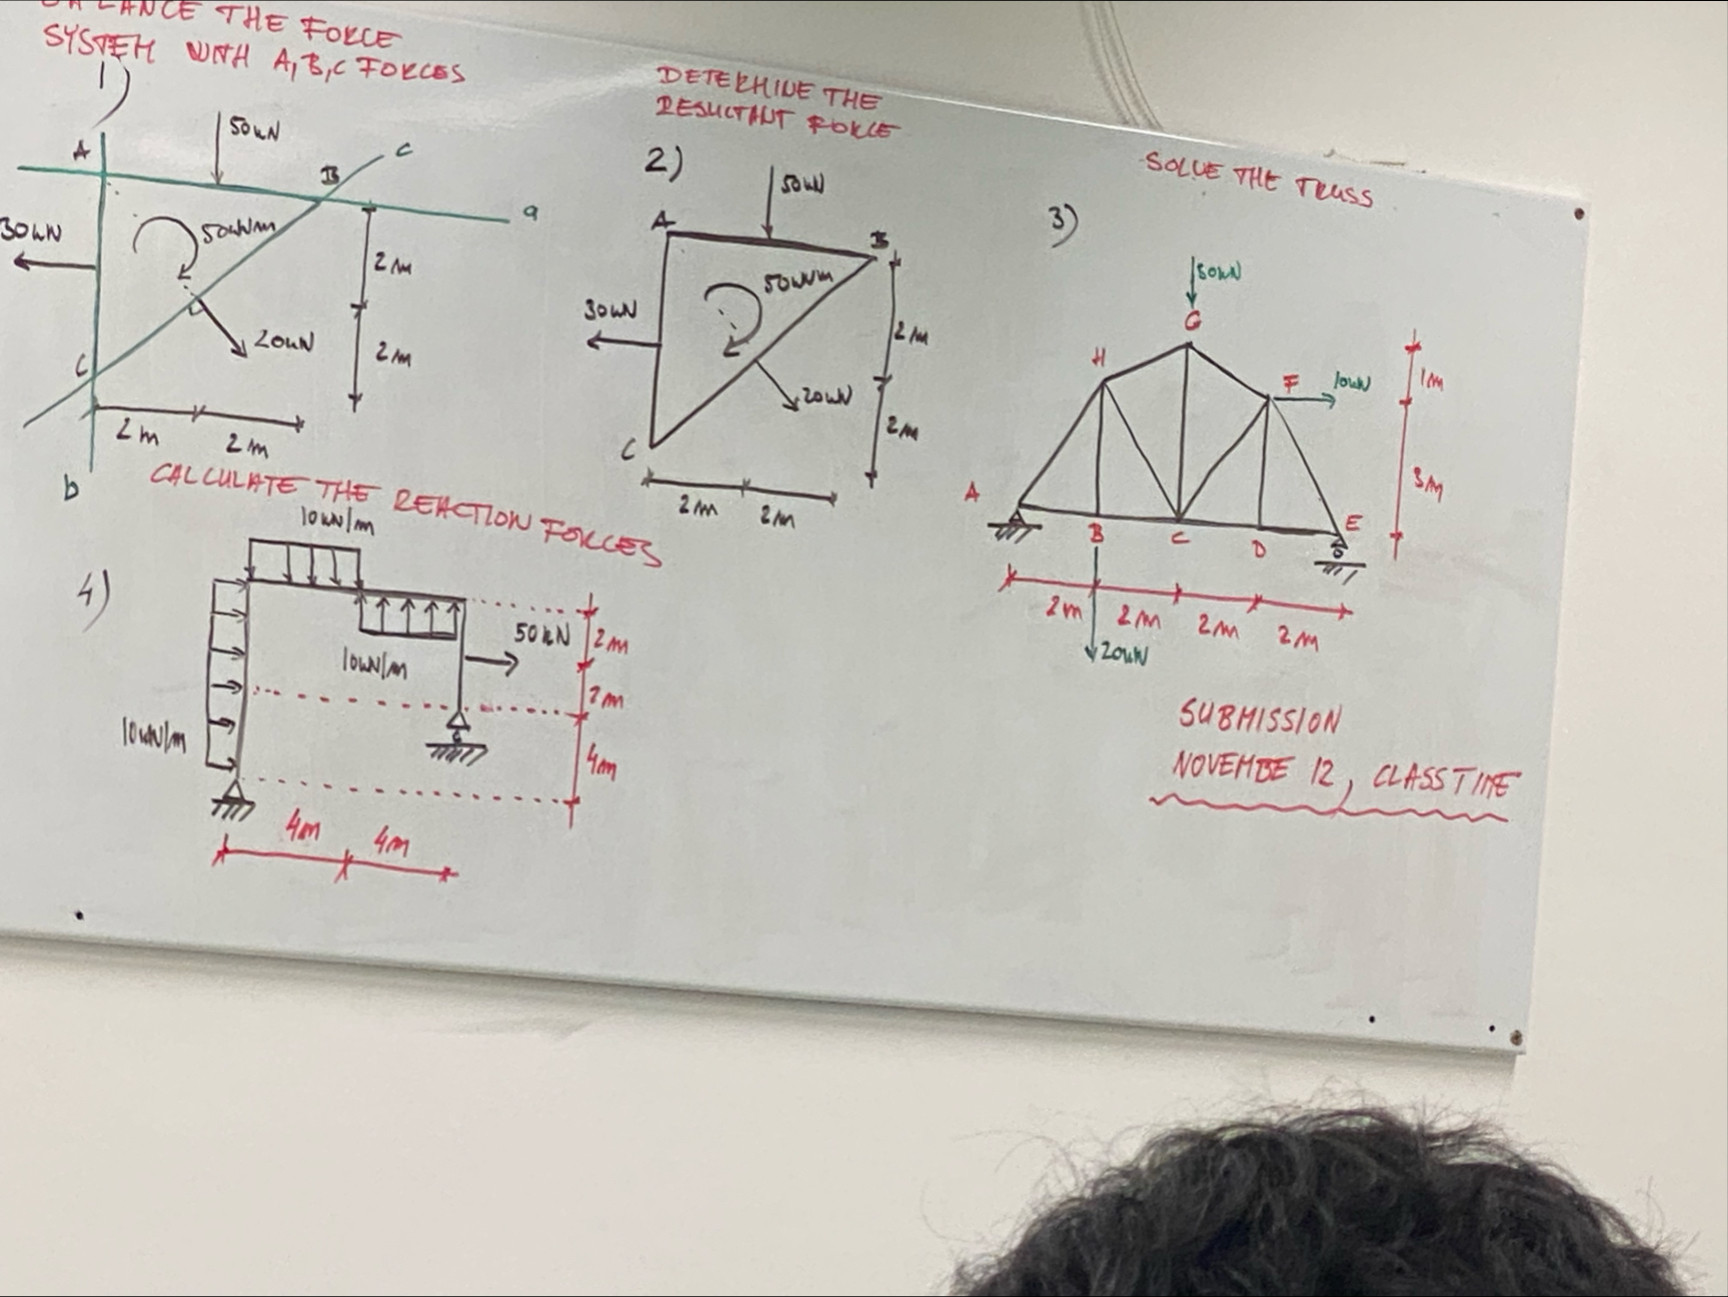 BALANCE THE FORCE
SYSTEM WITH A, B, C FORCES
1)
A
50kN
B
c
a
30kN
50kNm
2m
20kN
2m
C
2m
2m
b
DETERMINE THE
RESULTANT FORCE
2)
50kN
A
B
50kNm
30kN
2m
20kN
2m
C
2m
2m
SOLVE THE TRUSS
3)
50kN
G
H
F
10kN
1m
3m
A
B
C
D
E
2m
2m
2m
2m
20kN
CALCULATE THE REACTION FORCES
4)
10kN/m
50kN
2m
10kN/m
2m
10kN/m
4m
4m
4m
SUBMISSION
NOVEMBE 12, CLASS TIME